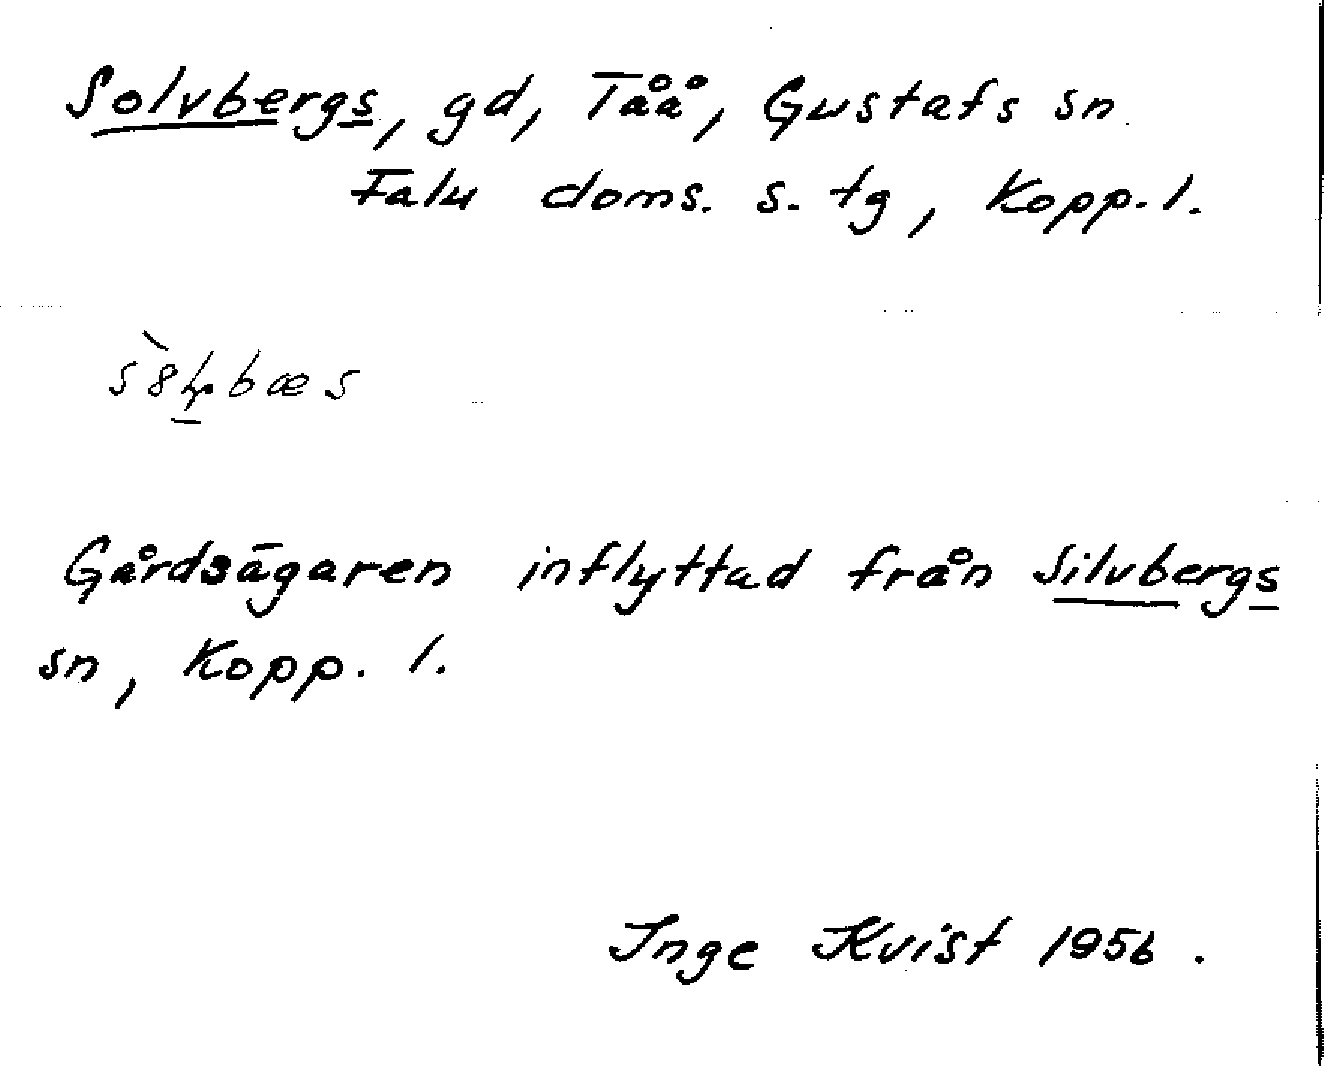 Solvbergs, gd, Tåå, Gustafs sn.
Falu doms. s. tg, Kopp. l.
Gårdsägaren inflyttad från Silvbergs
sn, Kopp. l.
Inge Kvist 1956.